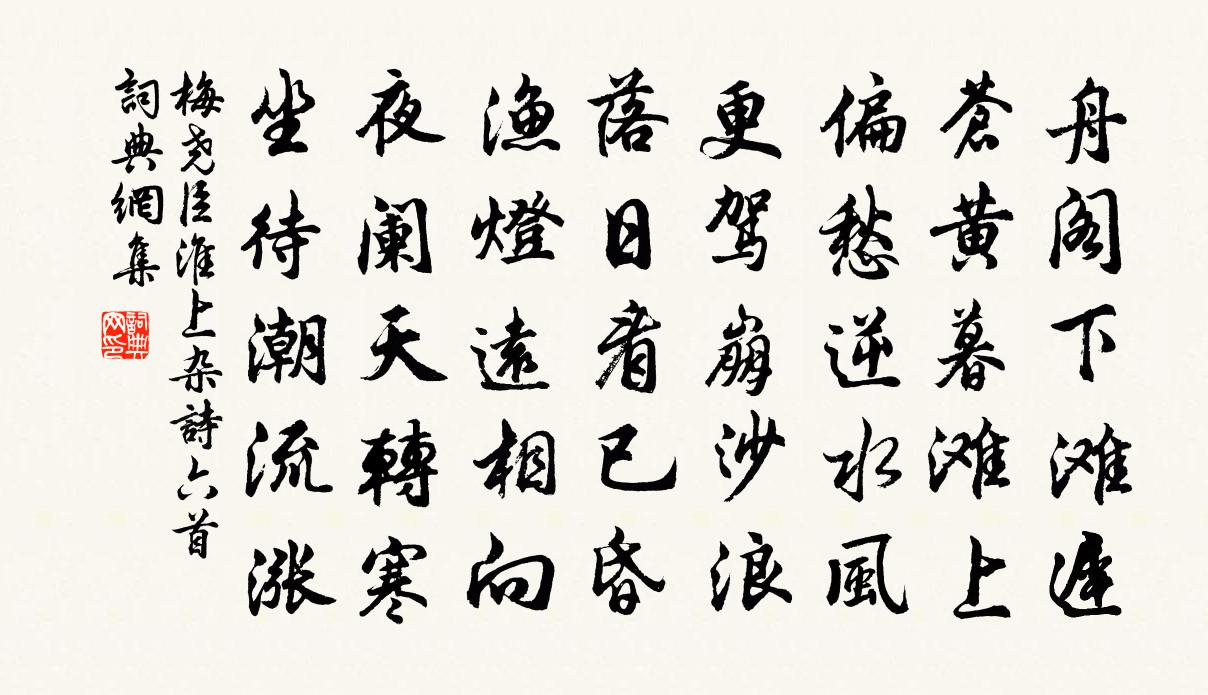 舟阁下滩遲
蒼黃暮滩上
偏愁逆水風
更驾崩沙浪
落日看已昏
漁燈遠相向
夜阑天轉寒
坐待潮流漲
梅尧臣淮上杂詩六首
詞典網集
詞典网印